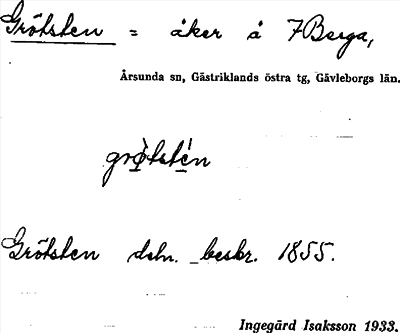 Grötsten = åker å 7 Berga,
Årsunda sn, Gästriklands östra tg, Gävleborgs län.
grò̱tstén
Grötsten dsn. beskr. 1855.
Ingegärd Isaksson 1933.